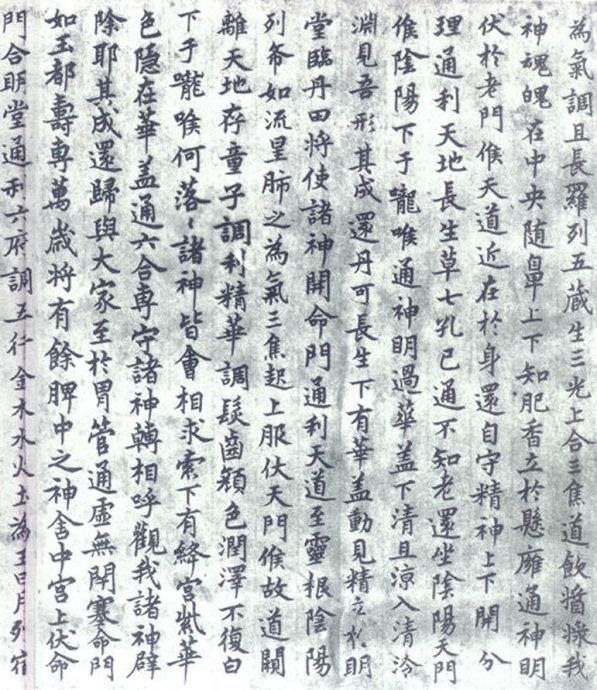 為氣調且長羅列五藏生三光上合三焦道飲醬漿我
神魂魄在中央随鼻上下知肥香立於懸癰通神明
伏於老門候天道近在於身還自守精神上下開分
理通利天地長生草七孔已通不知老還坐陰陽天門
候陰陽下于嚨喉通神明過華盖下清且涼入清泠
淵見吾形其成還丹可長生下有華盖動見精立於明
堂臨丹田将使諸神開命門通利天道至靈根陰陽
列布如流星肺之為氣三焦起上服伏天門候故道闚
離天地存童子調利精華調髮齒顔色潤澤不復白
下于嚨喉何落々諸神皆會相求索下有絳宫紫華
色隠在華盖通六合専守諸神轉相呼觀我諸神辟
除耶其成還歸與大家至於胃管通虚無閇塞命門
如玉都壽専萬歳将有餘脾中之神舍中宫上伏命
門合明堂通利六府調五行金木水火土為王日月列宿